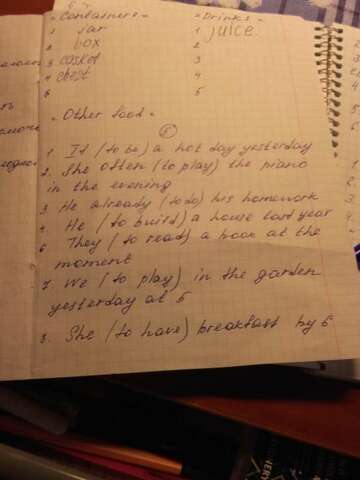 "Containers"
1 Jar
2 box
3 casket
4 chest
5
"Drinks"
1 juice.
2
3
4
5
"Other food"
5
1. It (to be) a hot day yesterday
2. She often (to play) the piano
in the evening
3. He already (to do) his homework
4. He (to build) a house last year
6 They (to read) a book at the
moment
7. We (to play) in the garden
yesterday at 5
8. She (to have) breakfast by 5